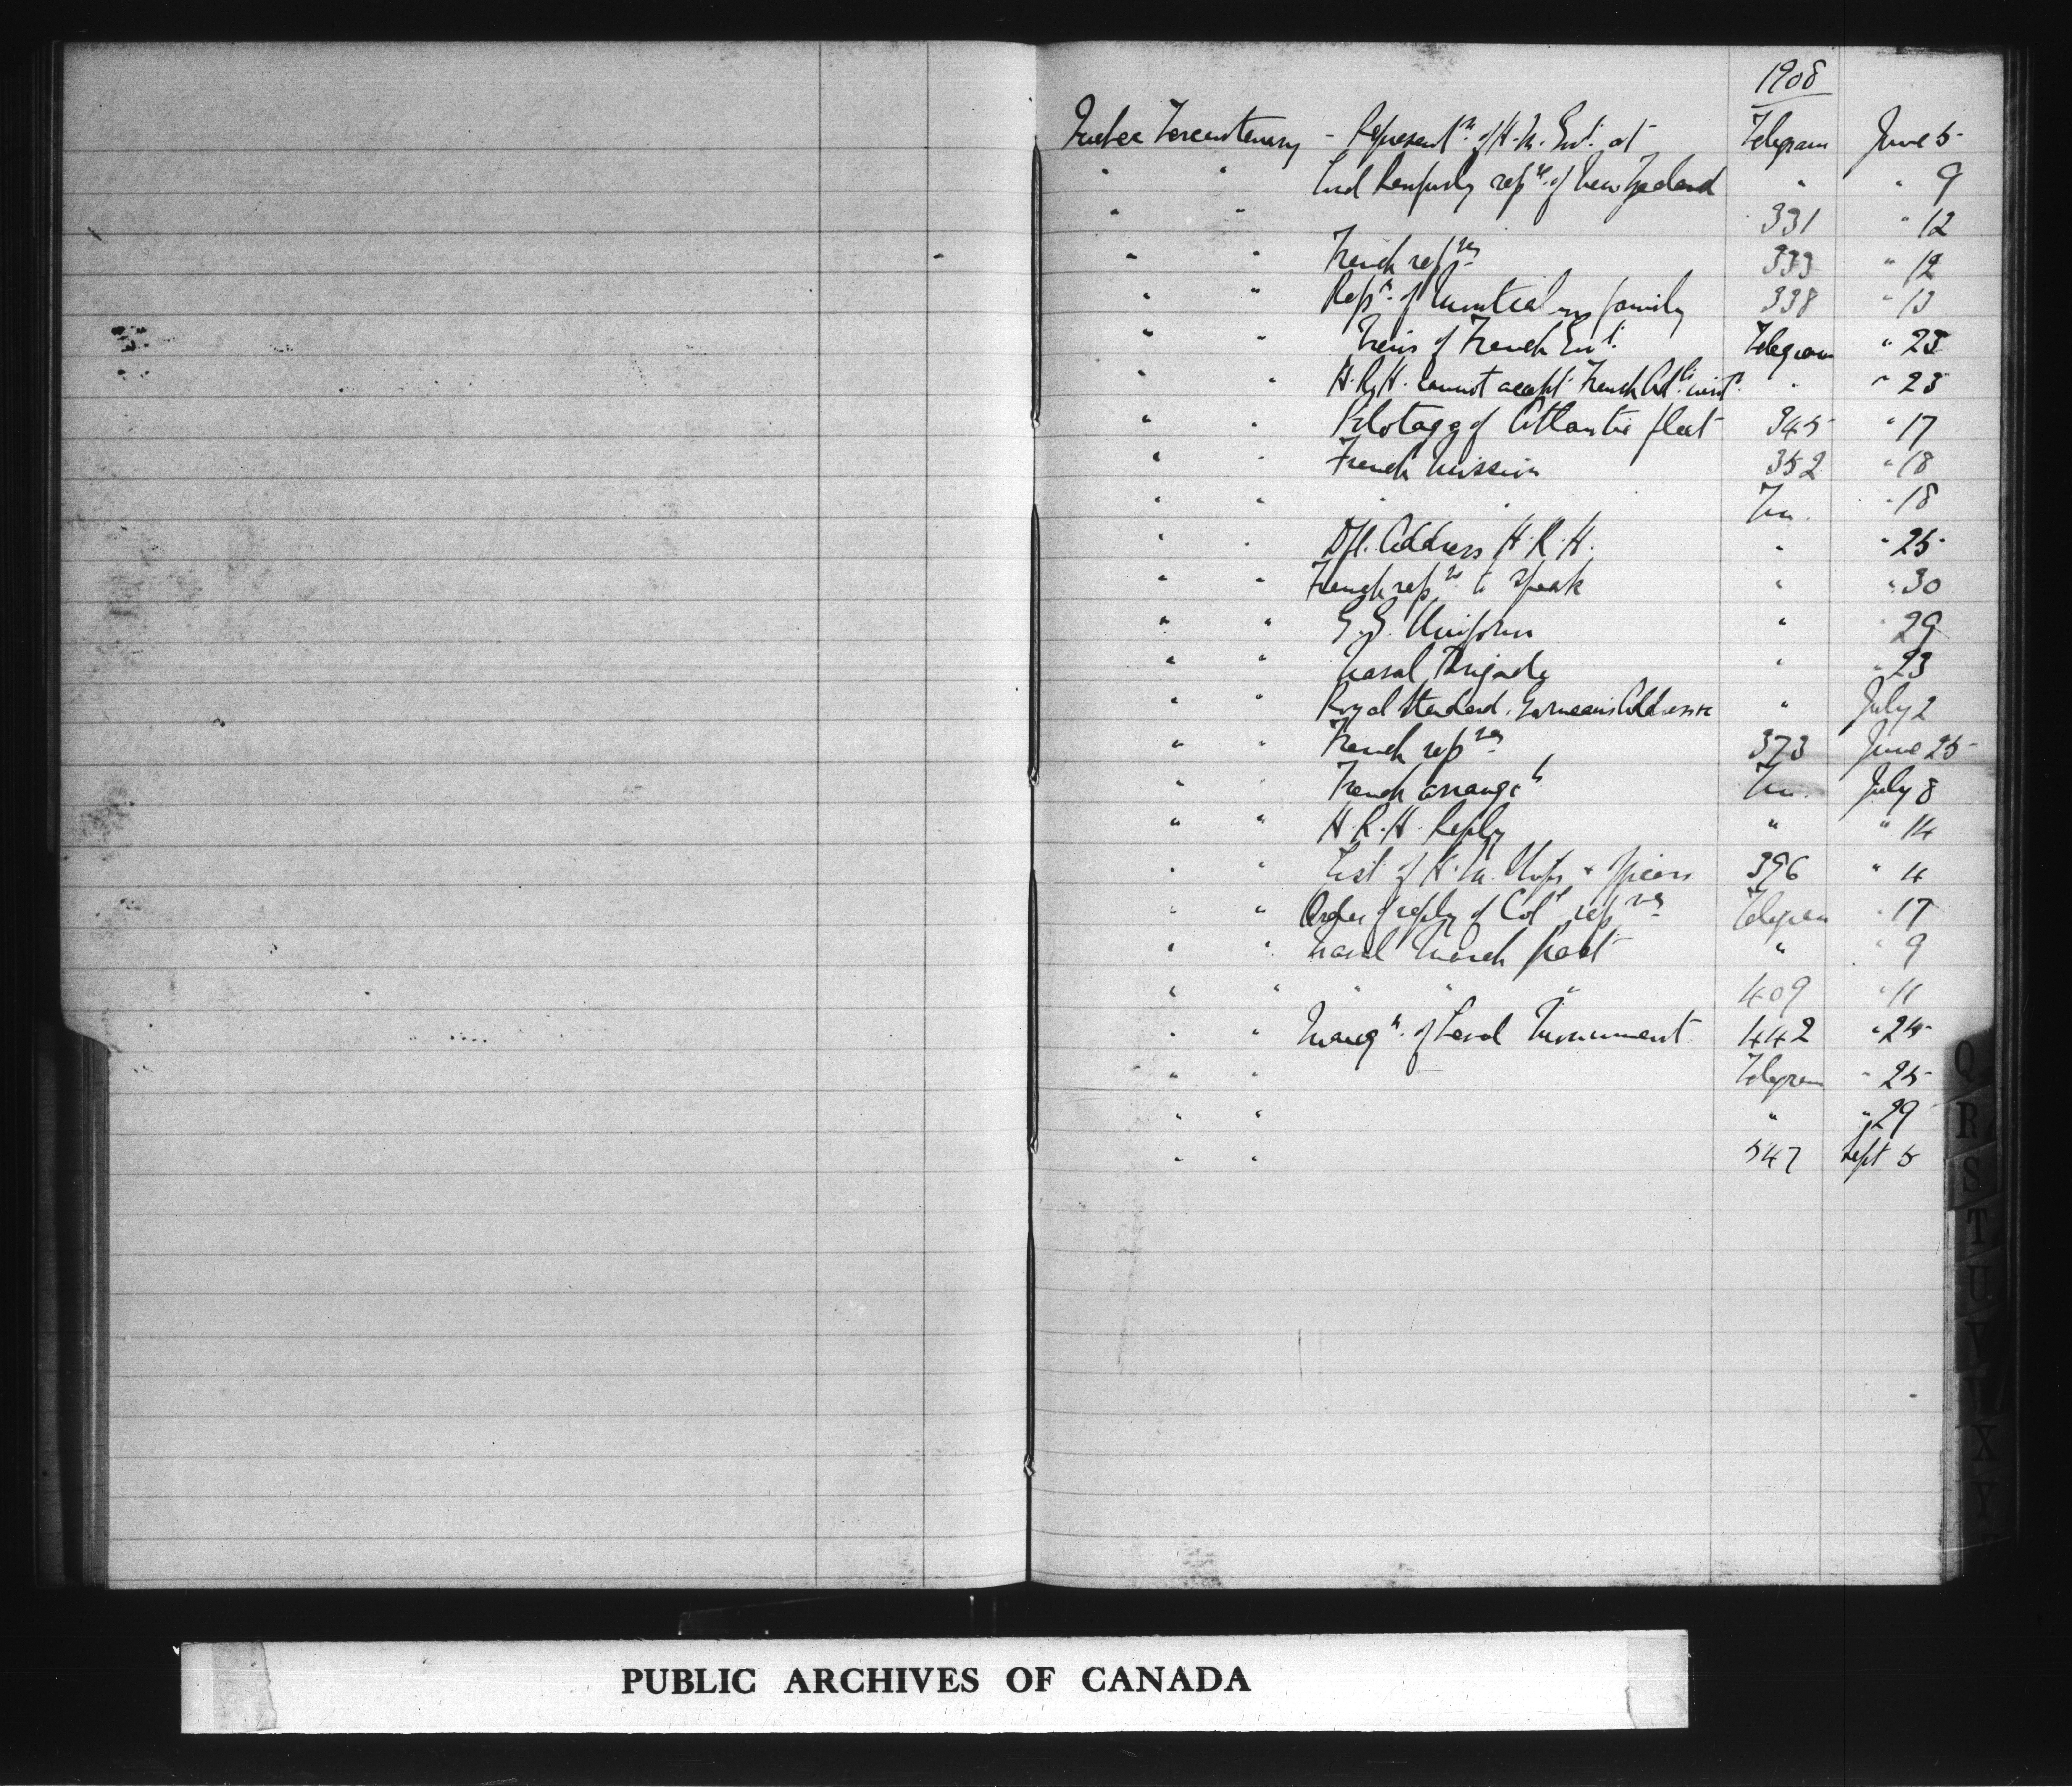 1908
Quebec Tercentenary - Represent.n of H.M. Govt. at Telegram June 5
" " Lord Ranfurly repve. of New Zealand " " 9
" " 331 " 12
" " French repves 333 " 12
" " Repn. of Montcalm family 338 " 13
" " Views of French Govt. Telegram " 23
" " H.R.H. cannot accept French Adls. invt. " " 23
" " Pilotage of Atlantic fleet 345 " 17
" " French Mission 352 " 18
" " " " Tm. " 18
" " Dft. Address H.R.H. " " 25
" " French repves to speak " " 30
" " G.G. Uniform " " 29
" " Naval Brigade " " 23
" " Royal Standard. Garneau's Address " July 2
" " French repves 373 June 25
" " French arrangts. Tm. July 8
" " H.R.H. Reply " " 14
" " List of H.M. Ships & Officers 396 " 4
" " Order of reply of Coll repves Telegram " 17
" " Naval March past " " 9
" " " " " 409 " 11
" " Inaugn. of Laval Monument 442 " 24
" " Telegram " 25
" " " " 29
" " 547 Sept 5
Q
R
S
T
U
V
X
Y
PUBLIC ARCHIVES OF CANADA